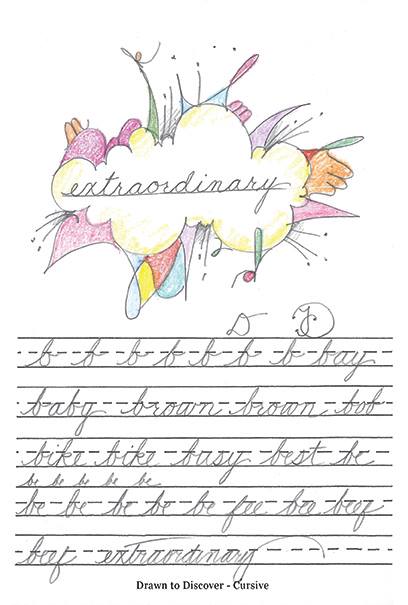 extraordinary
D D
b b b b b b b bay
baby brown brown bob
bike bike busy best be
be be be be be
be be be be be bee beef
beef extraordinary
Drawn to Discover - Cursive